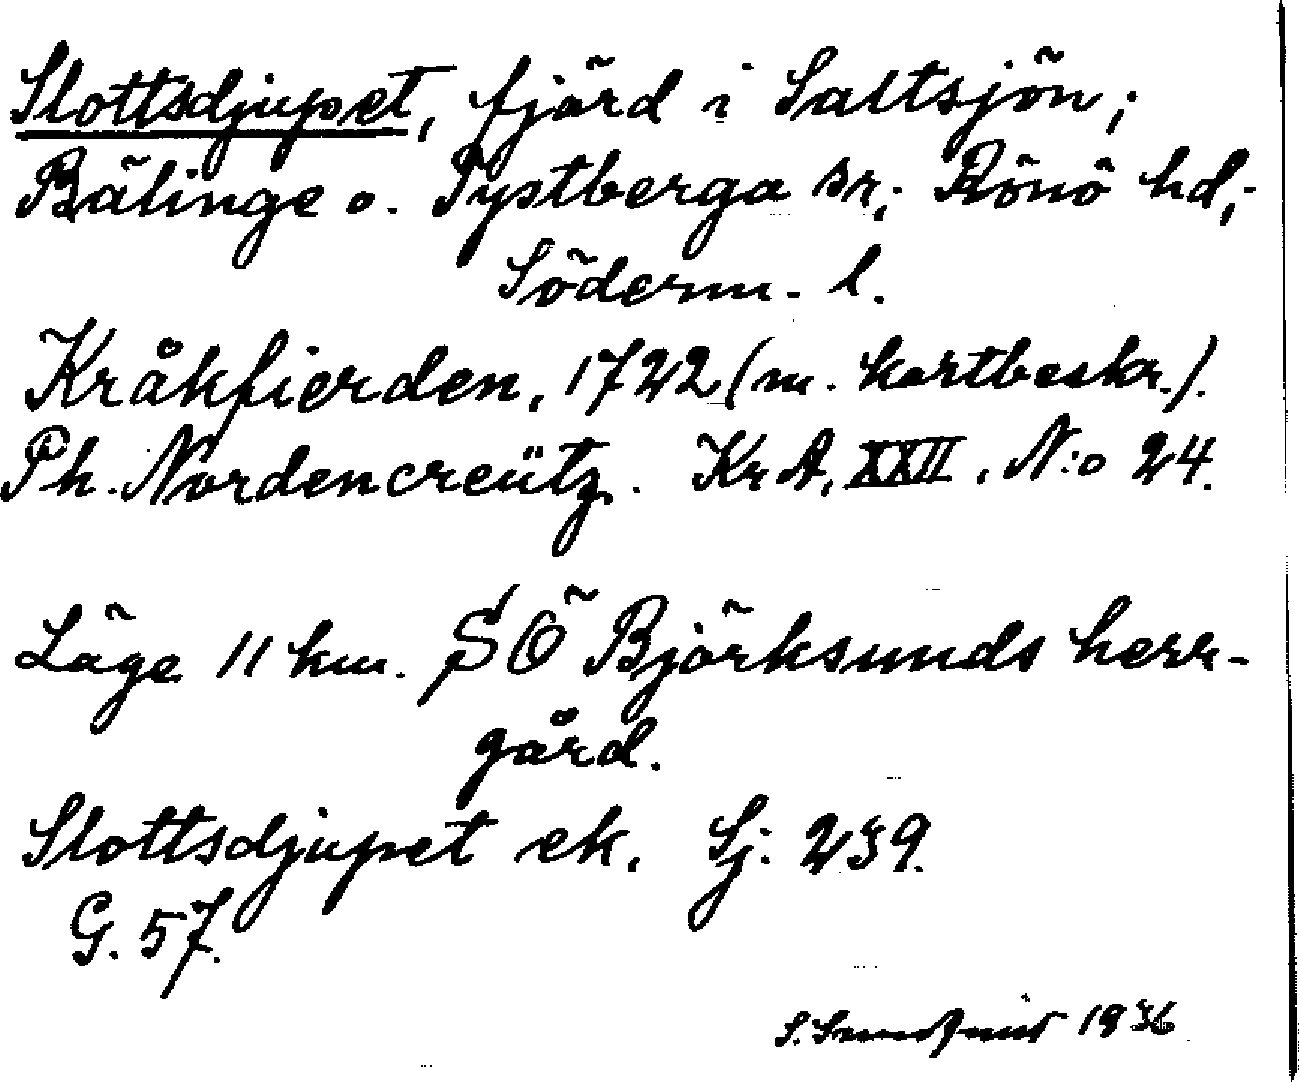 Slottsdjupet, fjärd i Saltsjön;
Bälinge o. Tystberga sr; Rönö hd;
Söderm. l.
Kråkfierden, 1722 (m. kartbeskr.).
Ph. Nordencreütz. Kr A, XXII, N:o 24.
Läge 11 km. SÖ Björksunds herr-
gård.
Slottsdjupet ek. Sj. 239.
G. 57.
S. Sundqvist 1936